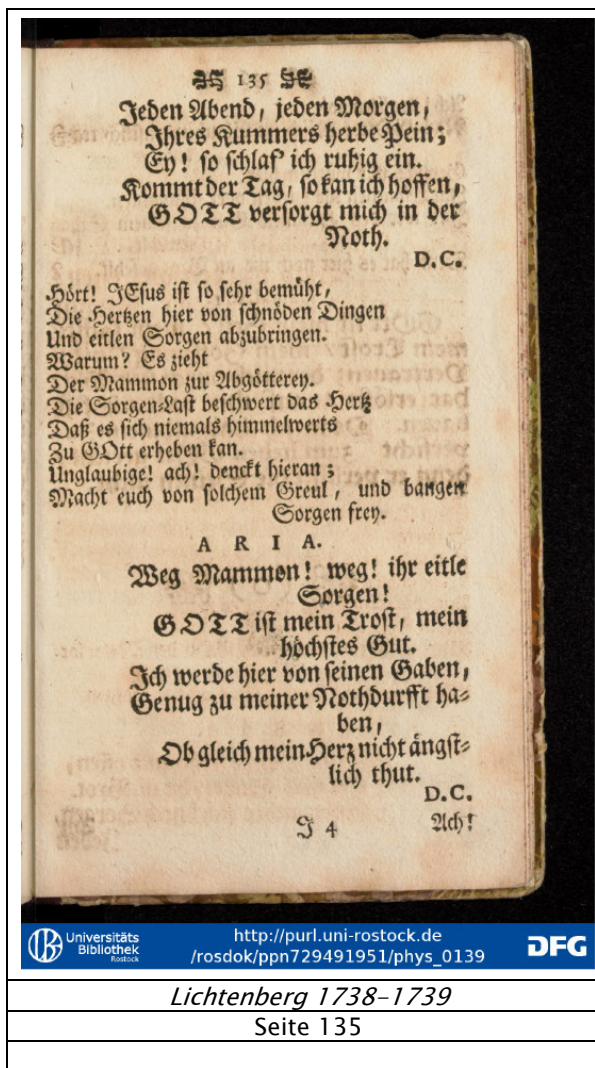 135
Jeden Abend, jeden Morgen,
Ihres Kummers herbe Pein;
Ey! so schlaf' ich ruhig ein.
Kommt der Tag, so kan ich hoffen,
GOTT versorgt mich in der
Noth.
D.C.
Hört! JEsus ist so sehr bemüht,
Die Hertzen hier von schnöden Dingen
Und eitlen Sorgen abzubringen.
Warum? Es zieht
Der Mammon zur Abgötterey.
Die Sorgen-Last beschwert das Hertz
Daß es sich niemals himmelwerts
Zu GOtt erheben kan.
Unglaubige! ach! denckt hieran;
Macht euch von solchem Greul, und bangen
Sorgen frey.
ARIA.
Weg Mammon! weg! ihr eitle
Sorgen!
GOTT ist mein Trost, mein
höchstes Gut.
Ich werde hier von seinen Gaben,
Genug zu meiner Nothdurfft ha-
ben,
Ob gleich mein Herz nicht ängst-
lich thut.
D.C.
J 4 Ach!
Universitäts
Bibliothek
Rostock
http://purl.uni-rostock.de
/rosdok/ppn729491951/phys_0139
DFG
Lichtenberg 1738-1739
Seite 135